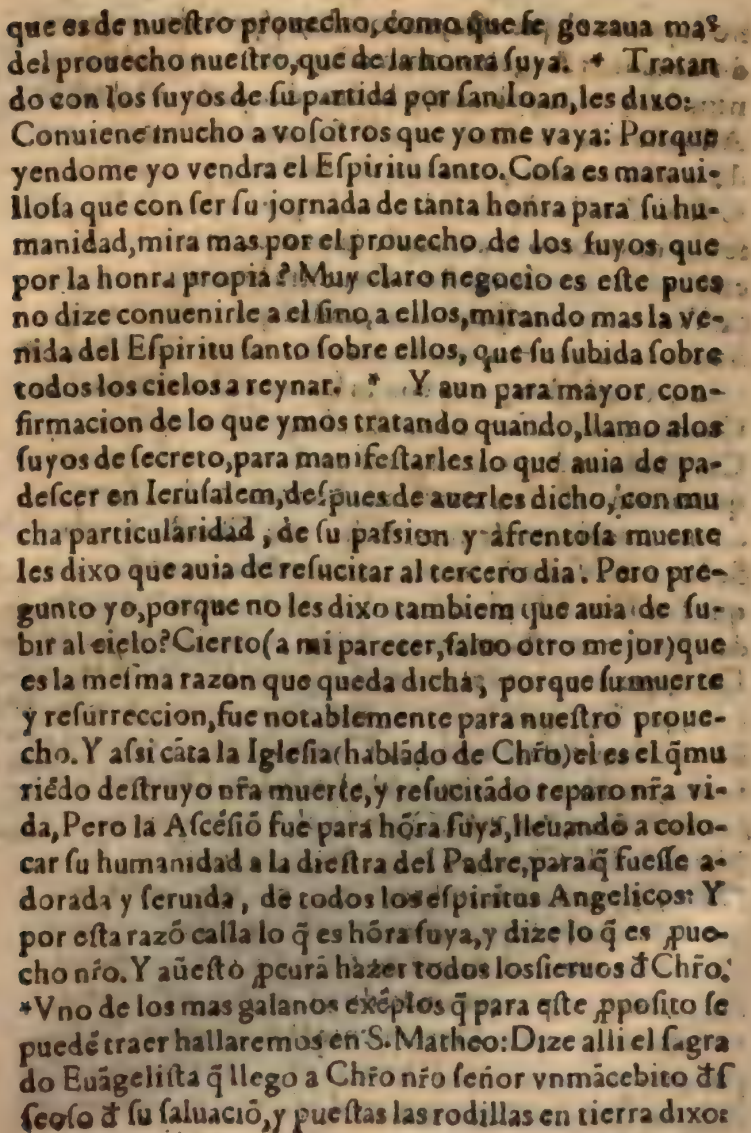 que es de nueſtro prouecho, como que ſe, gozaua mas
del prouecho nueſtro, que de la honra ſuya. * Tratan
do con los ſuyos de ſu partida por ſan Ioan, les dixo:
Conuiene mucho a voſotros que yo me vaya: Porque
yendome yo vendra el Eſpiritu ſanto. Coſa es maraui-
lloſa que con ſer ſu jornada de tanta honra para ſu hu-
manidad, mira mas por el prouecho de los ſuyos, que
por la honra propia? Muy claro negocio es eſte pues
no dize conuenirle a el ſino, a ellos, mirando mas la ve-
nida del Eſpiritu ſanto ſobre ellos, que ſu ſubida ſobre
todos los cielos a reynar. * Y aun para mayor con-
firmacion de lo que ymos tratando quando, llamo a los
ſuyos de ſecreto, para manifeſtarles lo que auia de pa-
deſcer en Ieruſalem, deſpues de auerles dicho, con mu
cha particularidad, de ſu paſsion y afrentoſa muerte
les dixo que auia de reſucitar al tercero dia. Pero pre-
gunto yo, porque no les dixo tambiem que auia de ſu-
bir al cielo? Cierto (a mi parecer, ſaluo otro mejor) que
es la meſma razon que queda dicha, porque ſu muerte
y reſurreccion, fue notablemente para nueſtro proue-
cho. Y aſsi cãta la Igleſia (hablãdo de Chr̃o) el es el q̃ mu
riẽdo deſtruyo nr̃a muerte, y reſucitãdo reparo nr̃a vi-
da, Pero la Aſcẽſiõ fue para hõra ſuya, lleuando a colo-
car ſu humanidad a la dieſtra del Padre, para q̃ fueſſe a-
dorada y ſeruida, de todos los eſpiritus Angelicos: Y
por eſta razõ calla lo q̃ es hõra ſuya, y dize lo q̃ es ꝓue-
cho nr̃o. Y aũ eſto ꝓcurã hazer todos los ſieruos đ Chr̃o.
*Vno de los mas galanos exẽplos q̃ para eſte ꝓpoſito ſe
puedẽ traer hallaremos en S. Matheo: Dize alli el ſagra
do Euãgeliſta q̃ llego a Chr̃o nr̃o ſeñor vn mãcebito đſ
ſeoſo đ ſu ſaluaciõ, y pueſtas las rodillas en tierra dixo: